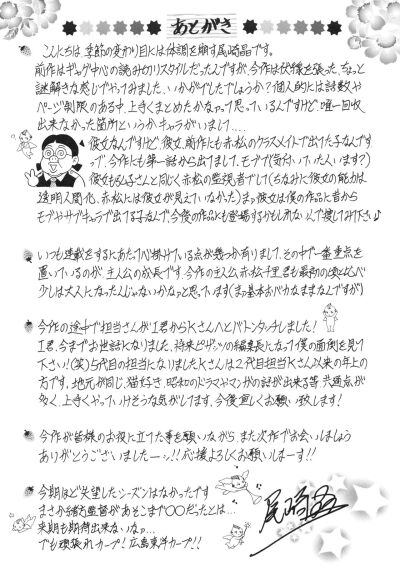 あとがき
こんにちは、季節の変わり目には体調を崩す尾崎晶です。
前作はギャグ中心の読み切りスタイルだったんですが、今作は伏線を張った、ちょっと
謎解きな感じでやってみました、いかがでしたでしょうか?個人的には話数や
ページ制限のある中、上手くまとめたかなァって思っているんですけど、唯一回収
出来なかった箇所というかキャラがいまして....
彼女なんですけど(彼女、前作にも赤松のクラスメイトで出てた子なんです
って、今作にも第一話から出てまして、モブで(気付いていた人います?)
彼女も弘子さんと同じく赤松の監視者でして(ちなみに彼女の能力は
透明人間化、赤松には彼女が見えていなかった)まァ彼女は僕の作品に昔から
モブやサブキャラで出てる子なんで、今後の作品にも登場するかもしれないんで捜してみて下さい♪
いつも連載をするにあたって心掛けている点が幾つか有りまして、その中で一番重点を
置いているのが、主人公の成長です。今作の主人公、赤松千里君も最初の頃と比べ
少しは大人になったんじゃないかなァと思っています(まァ基本おバカなままなんですが)
今作の途中で担当さんがI君からKさんへとバトンタッチしました!
I君、今までお世話になりました、将来ビッグな編集長になって僕の面倒を見て
下さい!(笑)5代目の担当になりましたKさんは2代目担当Kさん以来の年上の
方です、地元が同じ、猫好き、昭和のドラマやマンガの話が出来る等、共通点が
多く、上手くやっていけそうな気がしてます、今後宜しくお願い致します!
今作が皆様のお役に立てた事を願いながら、また次作でお会いしましょう
ありがとうございましたーッ!!応援よろしくお願いしまーす!!
今期ほど失望したシーズンはなかったです
まさか緒方監督があそこまで〇〇だったとは...
来期も期待出来ないなァ...
でも頑張れカープ!広島東洋カープ!!
尾崎晶